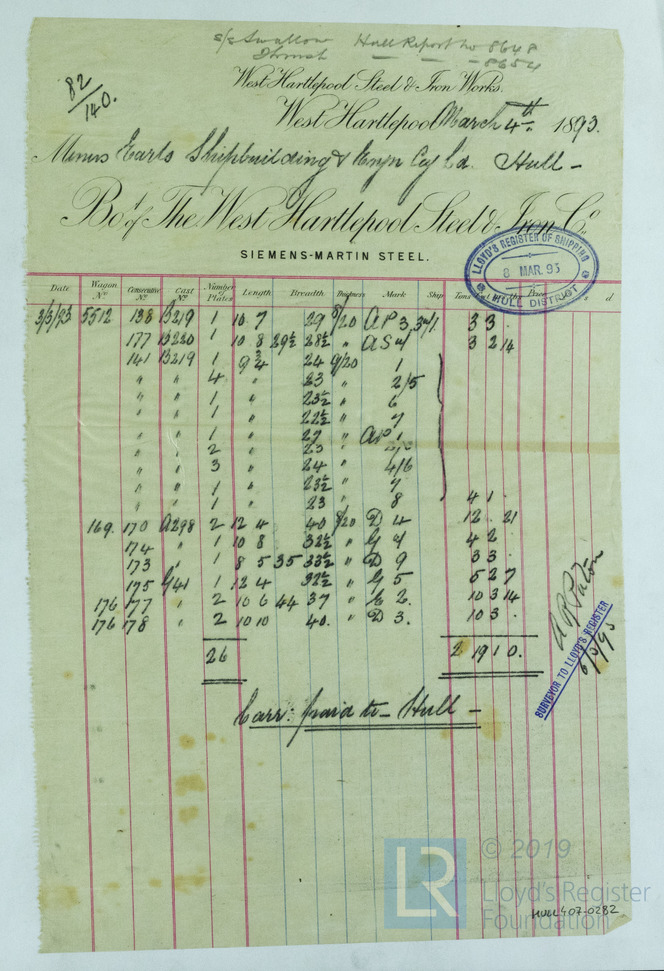 s/s Swallow Hull Report No 8648
Thrush — — - 8654
82/140.
West Hartlepool Steel & Iron Works.
West Hartlepool March 4th 1893.
Messrs Earls Shipbuilding & Engn Coy Ld. Hull -
Bot of The West Hartlepool Steel & Iron Co.
SIEMENS-MARTIN STEEL.
LLOYD'S REGISTER OF SHIPPING
8 MAR. 93
HULL DISTRICT
Date Wagon No Consecutive No Cast No Number Plates Length Breadth Thickness Mark Ship Tons Price s d
3/3/93 5512 138 B219 1 10 7 29 9/20 AP 3 3 3 .
177 B220 1 10 8 29½ 28½ " AS 3 2 14
141 B219 1 9 4 24 9/20 1
" " 4 " 23 " 2/5
" " 1 " 23½ " 6
" " 1 " 22½ " 7
" " 1 " 27 " AP 1
" " 2 " 23 "
" " 3 " 24 " 4/6
" " 1 " 23½ " 7
" " 1 " 23 " 8 4 1 .
169 170 A298 2 12 4 40 8/20 D 4 12 . 21
174 " 1 10 8 32½ " G 4 4 2
173 " 1 8 5 35 33½ " D 9 3 3 .
175 G41 1 12 4 32½ " G 5 5 2 7
176 177 " 2 10 6 44 37 " E 2. 10 3 14
176 178 " 2 10 10 40. " D 3. 10 3 .
26 2 19 1 0.
Carr: paid to - Hull -
SURVEYOR TO LLOYD'S REGISTER
6/3/93
LR
© 2019
Lloyd's Register
Foundation
HULL407-0282